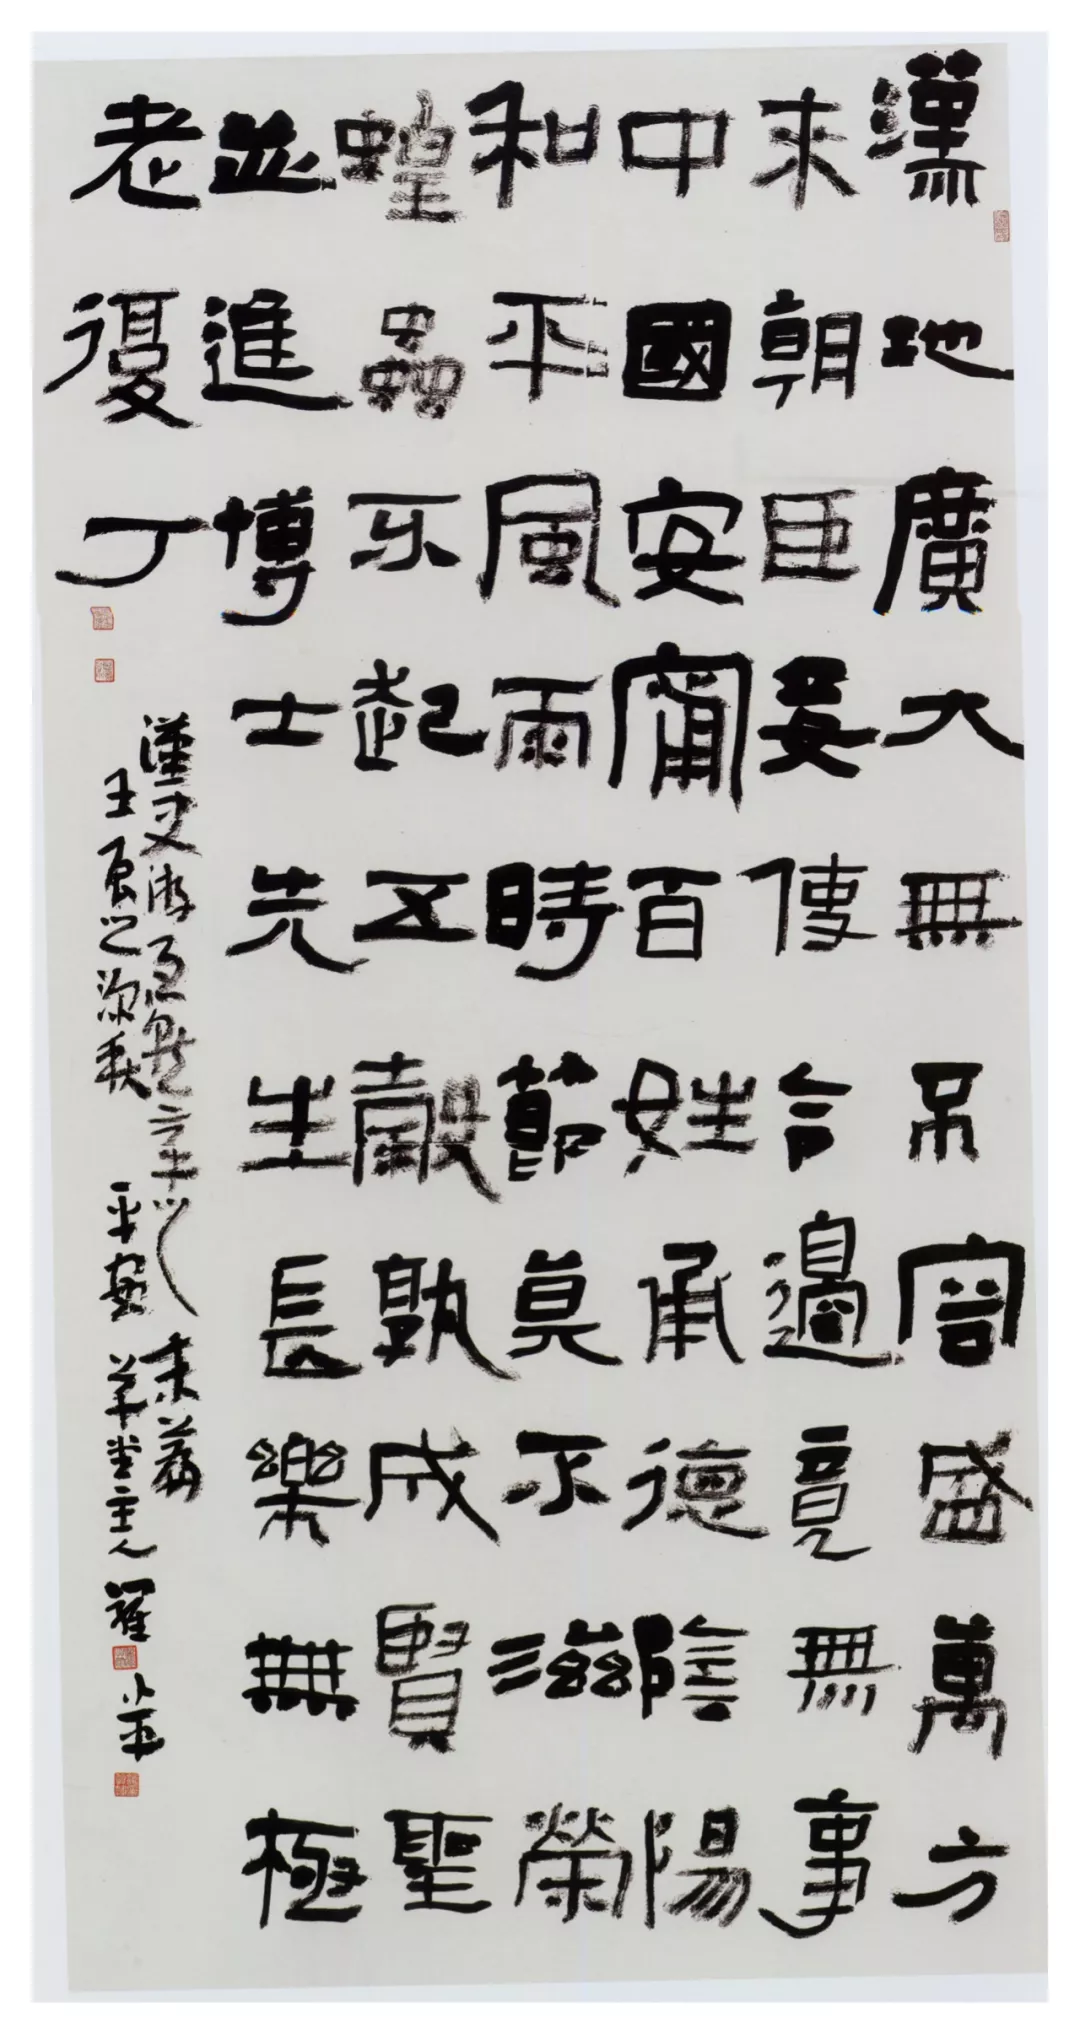 漢地廣大無不容盛萬方
來朝臣妾使令邊竟無事
中國安甯百姓承德陰陽
和平風雨時節莫不滋榮
蝗蟲不起五穀孰成賢聖
並進博士先生長樂無極
老復丁
漢史游急就章
壬辰之深秋草堂主人